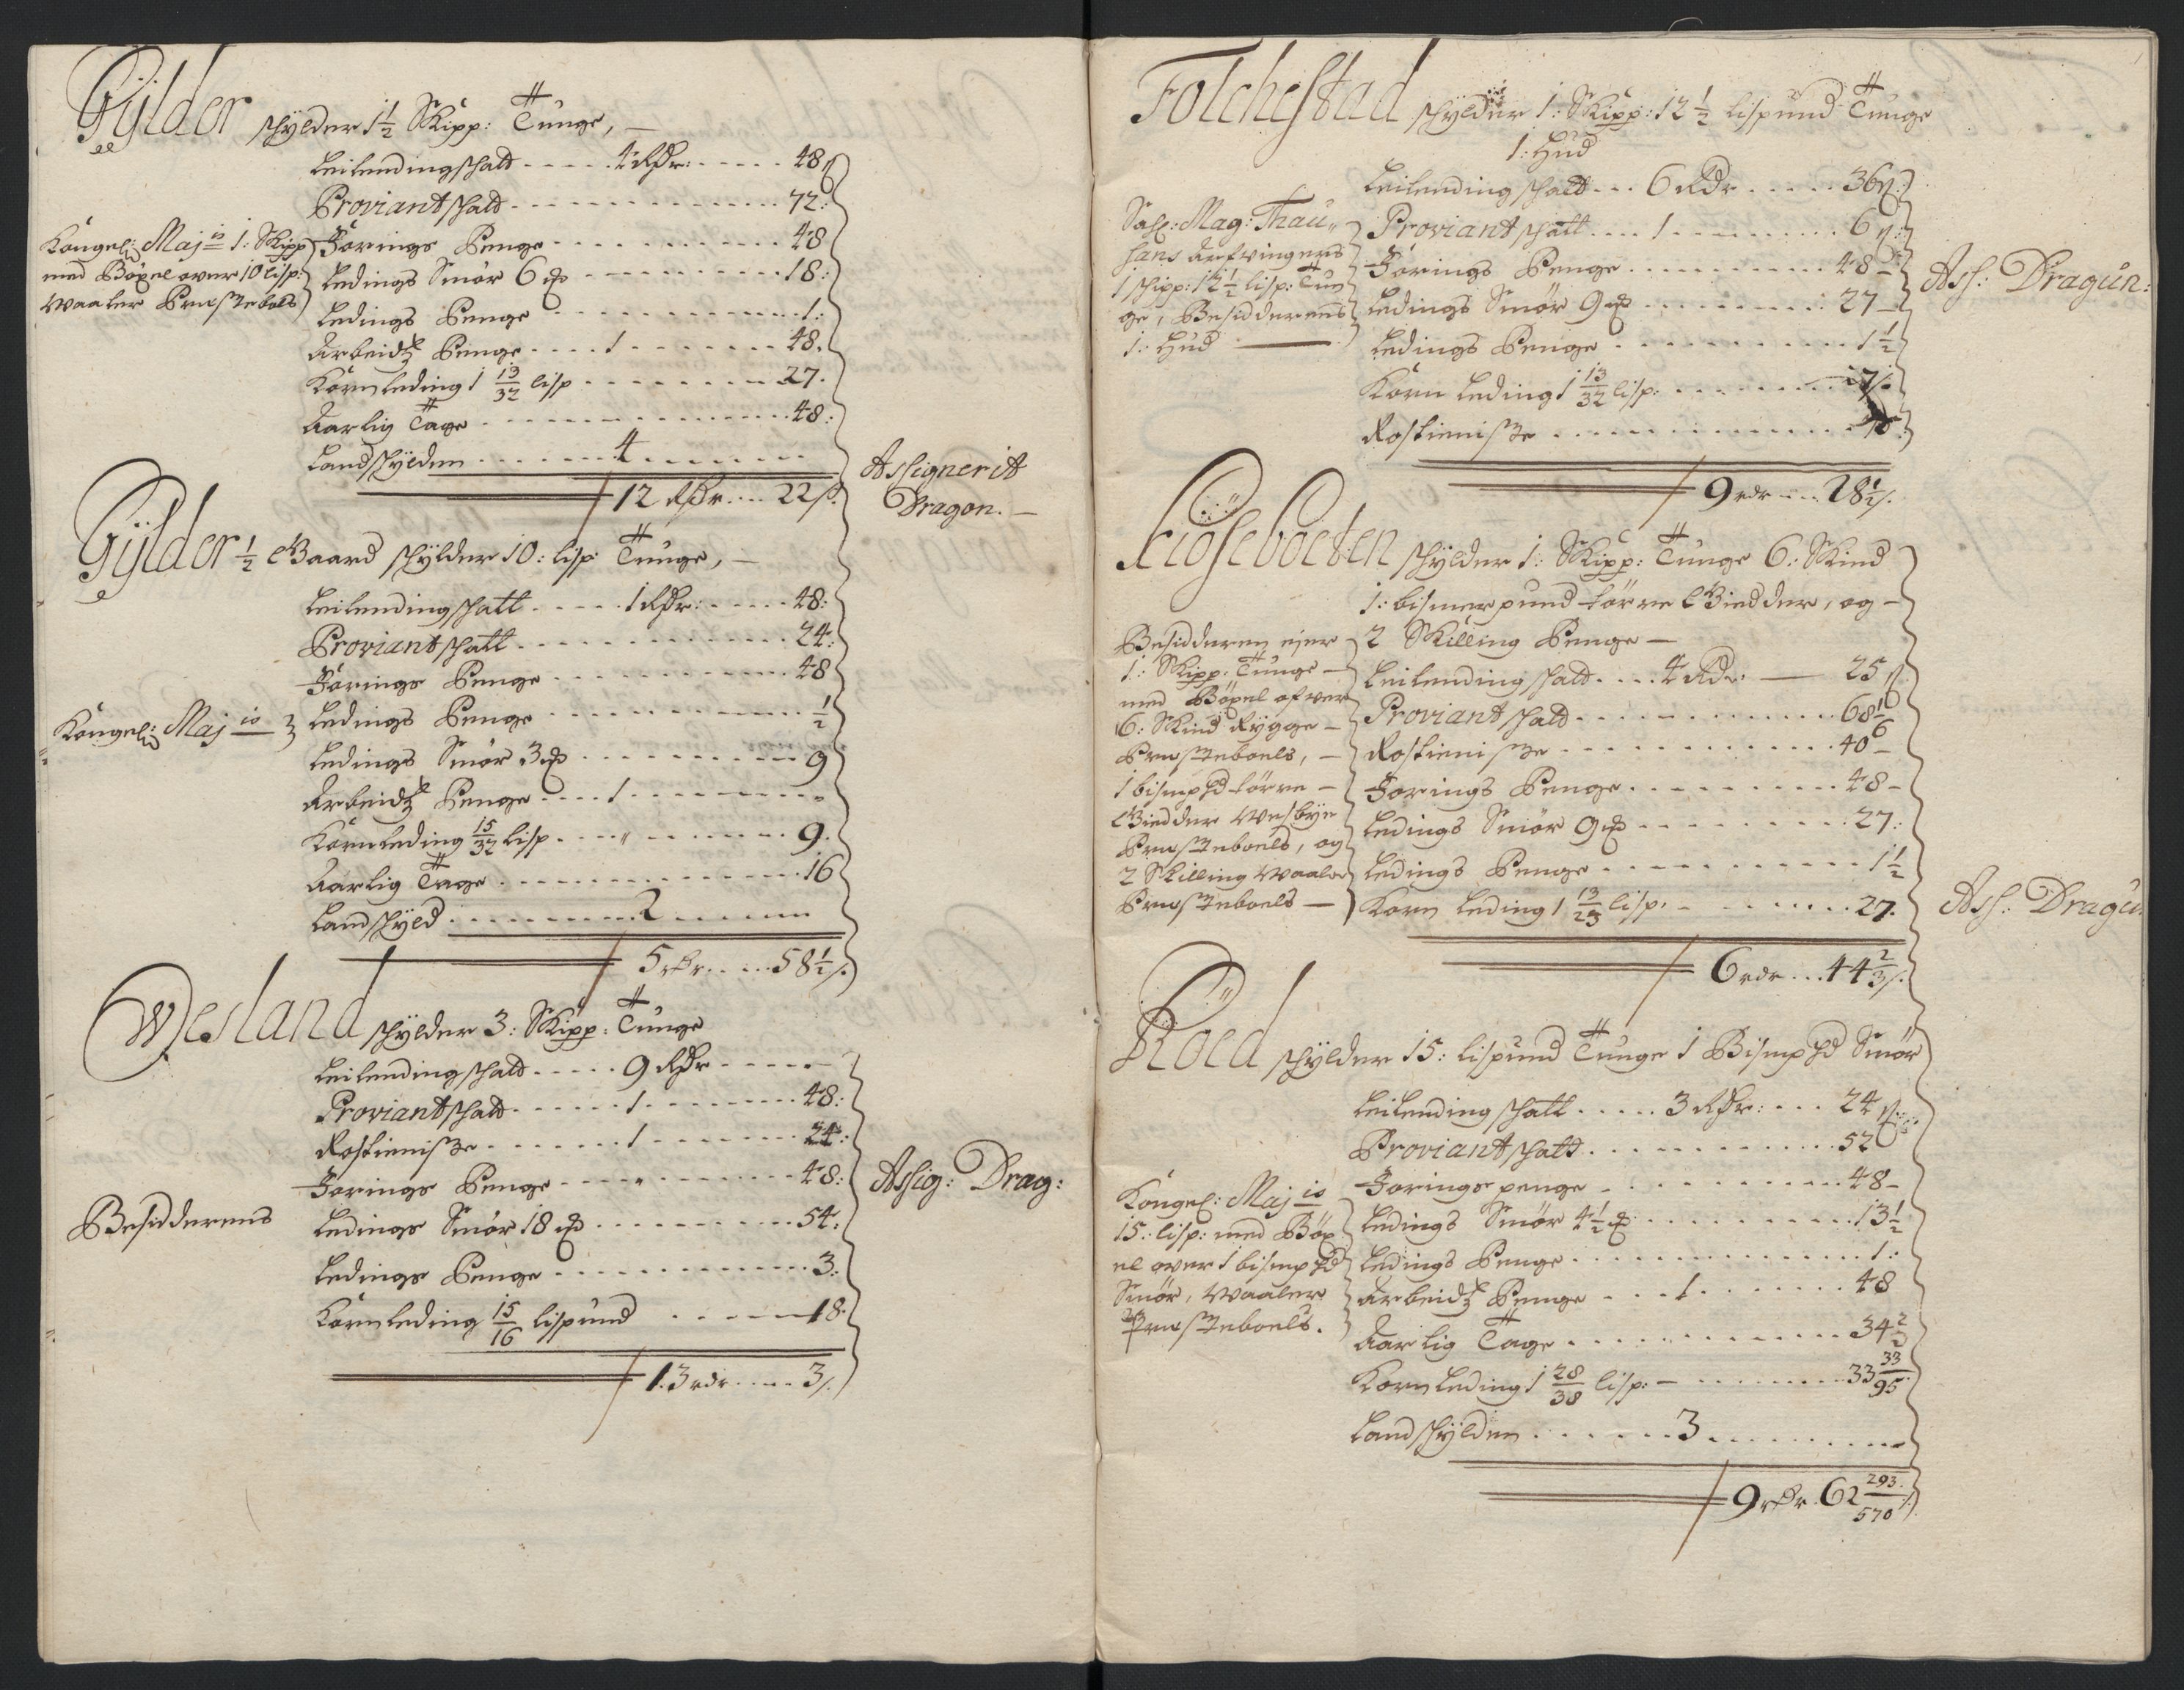 Gÿlder schÿlder 1 1/2 Skipp: Tunge,
Leilendingschatt - - - - - 4 Rdr: - - - - - 48 ß
Proviantschatt - - - - - - 72:
Kongel: Maj is 1: Skipp
med Böxel over 10 lisp:
Waaler Præsteboels
Forings Penge - - - - - - 48
Ledings Smör 6 ℔ - - - - - - 18:
Ledings Penge - - - - - - 1:
Arbeidtz Penge - - - - 1 - - - - - - 48.
Kornleding 1 13/32 lisp - - - - - - 27.
Aarlig Tage - - - - - - 48:
Landschÿlden - - - - - - 4 - - - - - -
12 Rdr - - - 22 ß.
Assignerit
Dragon. —
Gÿlder 1/2 Gaard schÿlder 10: lisp: Tunge, —
Leilendingschatt - - - - - 1 Rdr: - - - - - 48:
Proviantschatt - - - - - - 24:
Forings Penge - - - - - - 48
Kongel: Maj is
Ledings Penge - - - - - - 1/2
Ledings Smör 3 ℔ - - - - - - 9
Arbeidtz Penge - - - - 1 - - - - - -
Kornleding 15/32 lisp - - - - " - - - - - - 9.
Aarlig Tage - - - - - - 16
Landschÿld - - - - - - 2 - - - - - -
5 rdr - - - - 58 1/2 ß.
Wesland schÿlder 3: Skipp: Tunge
Leilendingschatt - - - - - 9 Rdr - - - - - -
Proviantschatt - - - - - - 1 - - - - - - 48:
Rostieniste - - - - - - 1 - - - - - - 24:
Forings Penge - - - - " - - - - - - 48:
Assig: Drag:
Besidderens
Ledings Smör 18 ℔ - - - - - - 54.
Ledings Penge - - - - - - 3:
Kornleding 15/16 lispund - - - - - 18
13 rdr - - - - 3 ß.
Folchestad schÿlder 1: Skipp: 12 1/2 lispund Tunge
1: Hud
Leilending schatt - - - 6 Rdr - - - - - 36 ß:
Sal: Mag: Thau„
sans Arfvingers
1 schipp: 12 1/2 lisp: Tun
ge, Besidderens
1: Hud
Proviant schatt - - - - 1 - - - - - - 6 ß:
Forings Penge - - - - - - 48 —
Ledings Smör 9 ℔ - - - - - - 27 —
Ledings Penge - - - - - - 1 1/2
Korn Leding 1 13/32 lisp: - - - - - -
Rostieniste - - - - - -
Ass: Dragun:
9 rdr - - - 28 1/2 ß.
Kiöseboeten schÿlder 1: Skipp: Tunge 6: Skind
1: bismerpund törre Giedder, og —
2 Skilling Penge —
Besidderen ejer
1: Skipp: Tunge —
med Böxel ofver
6: Skind Rygge —
Præsteboels, —
1 bismpd törre —
Giedder Westbye
Præsteboels, og
2 Skilling Waaler
Præsteboels —
Leilending schatt - - - - 4 Rdr: — 25 ß
Proviant schatt - - - - - - 68 1/6
Rostieniste - - - - - - 40 —
Forings Penge - - - - - - 48 —
Ledings Smör 9 ℔ - - - - - - 27:
Ledings Penge - - - - - - 1 1/2
Korn Leding 1 13/23 lisp: - - - - - - 27.
Ass: Dragu
6 rdr - - - 44 2/3 ß.
Röed schÿlder 15: lispund Tunge 1 Bismpd Smör
Leilending schatt - - - - - 3 Rdr: - - - 24 ß:
Proviantschatt - - - - - - 52
Foringspenge - - - - - - 48 —
Kongel: Maj is
15: lisp: med Böx
el over 1 bismpd
Smör, Waaler
Præsteboels.
Ledings Smör 4 1/2 ℔ - - - - - - 13 1/2
Ledings Penge - - - - - - 1:
Arbeidtz Penge - - - 1 - - - - - - 48
Aarlig Tage - - - - - - 34 2/3
Kornleding 1 28/38 lisp: - - - - - - 33 33/95
Landschÿlden - - - - - - 3 - - - - - -
9 rdr 62 293/570 ß.